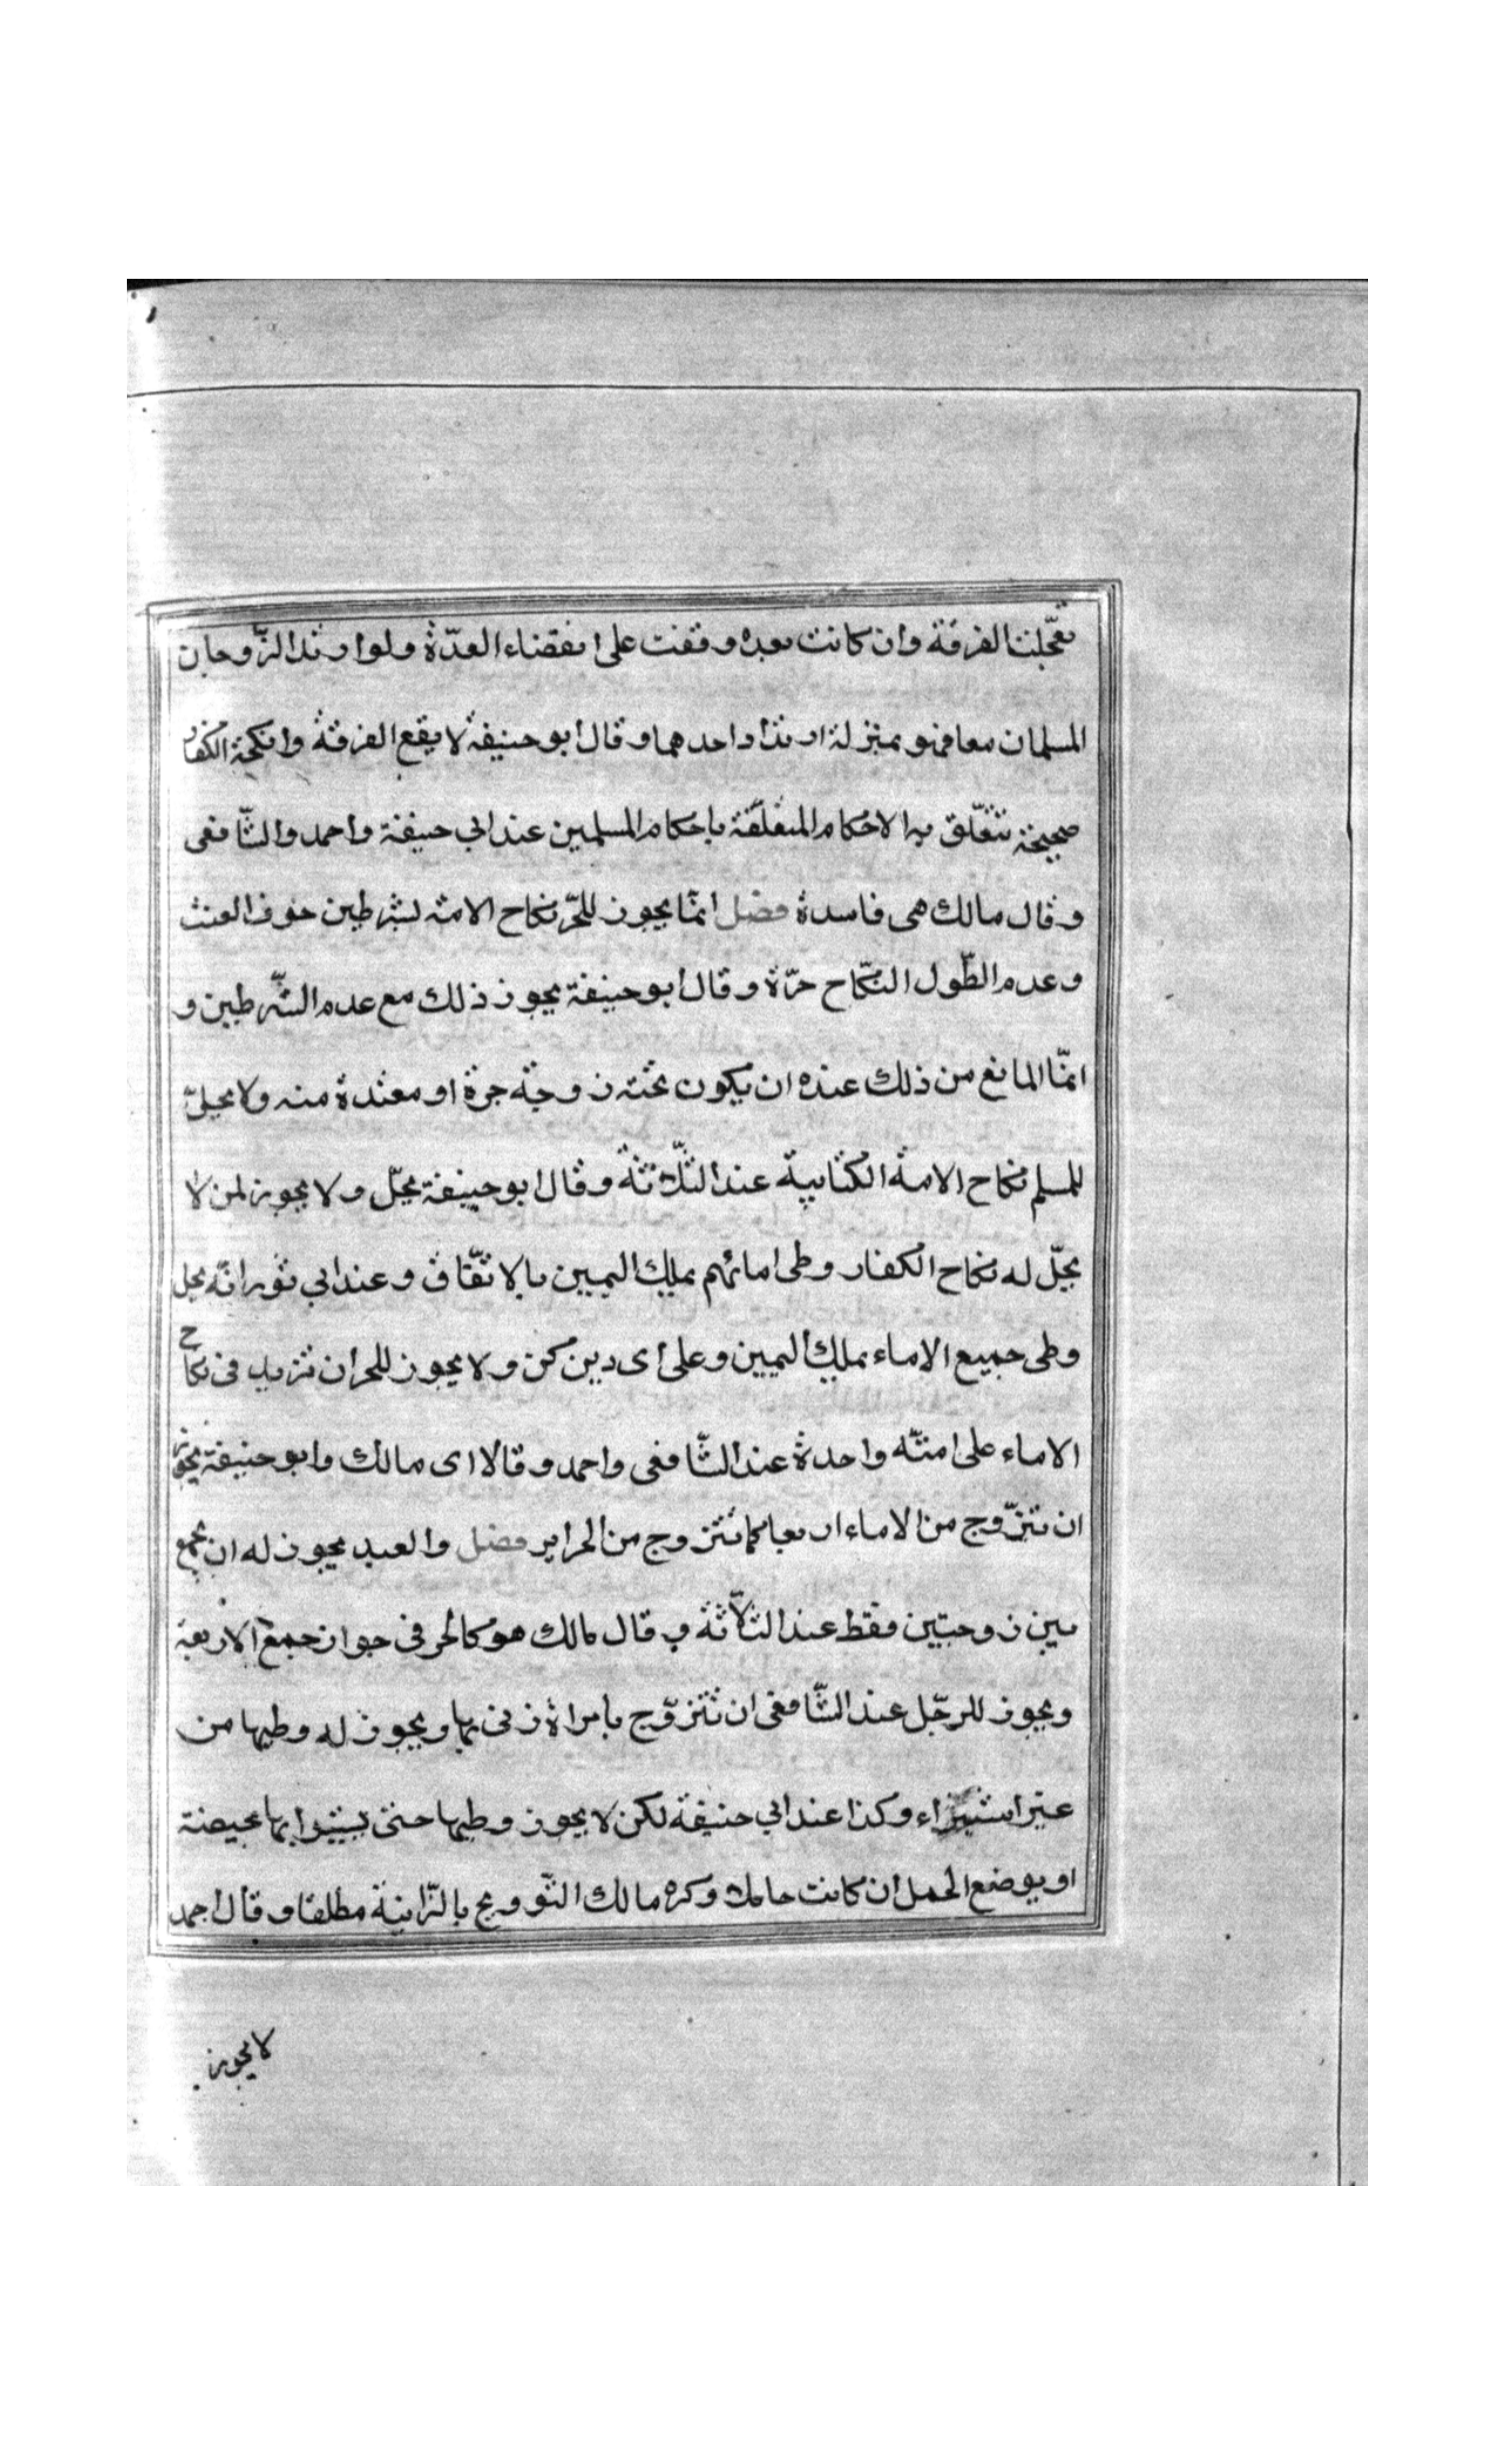 تعجّلت الفرقة وان كانت بعده وقفت على انقضاء العدّة ولو ارتد الزّوجان
المسلمان معا فهو بمنزلة ارتداد احدهما وقال ابو حنيفة لا يقع الفرقة وانكحة الكفار
صحيحة تتعلّق به الاحكام المتعلّقة باحكام المسلمين عند ابي حنيفة واحمد والشّافعى
وقال مالك هى فاسدة فصل انمّا يجوز للحّر نكاح الامة بشرطين خوف العنت
وعدم الطّول النكّاح حرّة وقال ابو حنيفة يجوز ذلك مع عدم الشّرطين و
انمّا المانع من ذلك عنده ان يكون تحته زوجة حرة او معتدة منه ولا يحلّ
للمسلم نكاح الامة الكتابية عند الثّلاثة وقال ابو حنيفة يحلّ ولا يجوز لمن لا
يحلّ له نكاح الكفار وطى امائهم بملك اليمين بالاتّفاق وعند ابي ثور انّه يحل
وطى جميع الاماء بملك اليمين وعلى اى دين كن ولا يجوز للحر ان تزيد فى نكاح
الاماء على امتّه واحدة عند الشّافعى واحمد وقالا اى مالك وابو حنيفة يجوز
ان تتزّوج من الاماء اربعا كما تتزوج من الحراير فصل والعبد يجوز له ان يجمع
بين زوجتين فقط عند الثلاّثة و قال مالك هو كالحر فى جواز جمع الاربعة
ويجوز للرجّل عند الشّافعى ان تتزوّج بامراة زنى بها ويجوز له وطيها من
غير استبراء وكذا عند ابي حنيفة لكن لا يجوز وطيها حتى يستبرا بها بحيضة
او بوضع الحمل ان كانت حاملا وكره مالك التّوويج بالزّانية مطلقا وقال احمد
لا يجوز